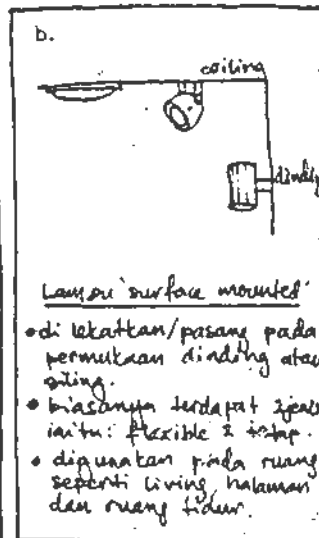 b.
ceiling
dinding
Lampu 'surface mounted'
• di lekatkan/pasang pada
permukaan dinding atau
siling.
• biasanya terdapat 2 jenis
iaitu: flexible & tetap.
• digunakan pada ruang
seperti living, halaman
dan ruang tidur.